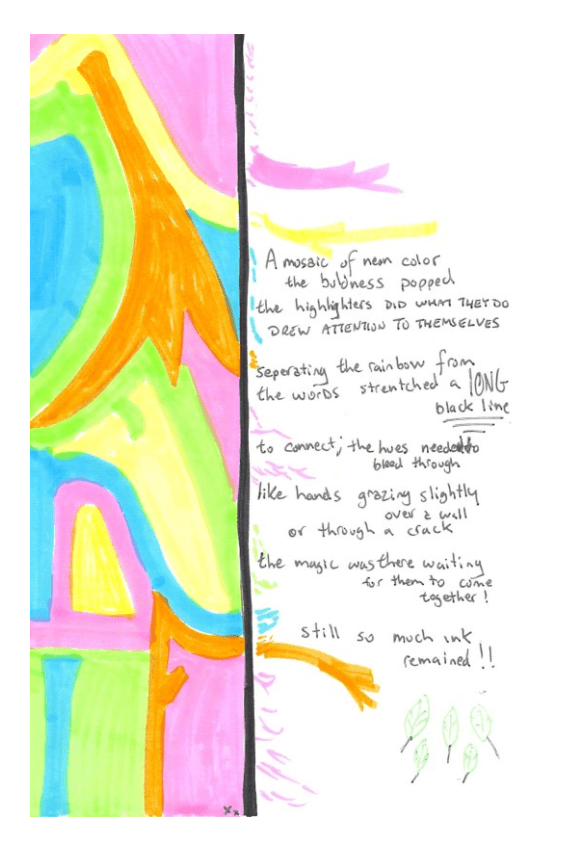 A mosaic of neon color
the boldness popped
the highlighters DID WHAT THEY DO
DREW ATTENTION TO THEMSELVES
seperating the rainbow from
the words strentched a LONG
black line
to connect; the hues needed to
bleed through
like hands grazing slightly
over a wall
or through a crack
the magic was there waiting
for them to come
together!
still so much ink
remained!!